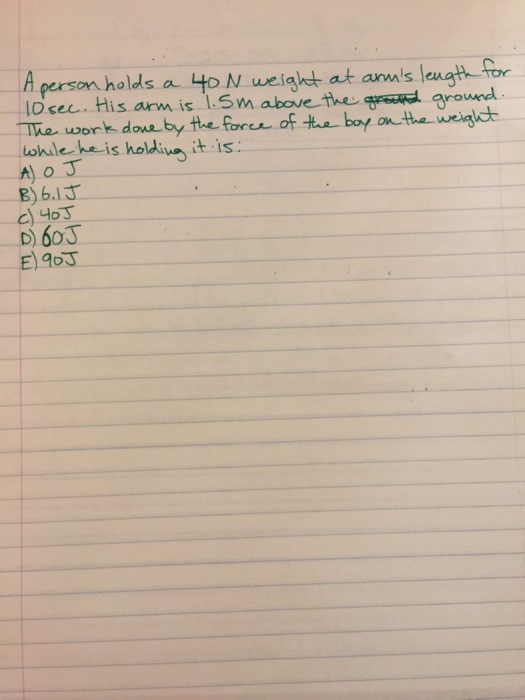 A person holds a 40 N weight at arm's length for
10 sec. His arm is 1.5m above the ground ground.
The work done by the force of the boy on the weight
while he is holding it is:
A) 0 J
B) 6.1J
C) 40J
D) 60J
E) 90J